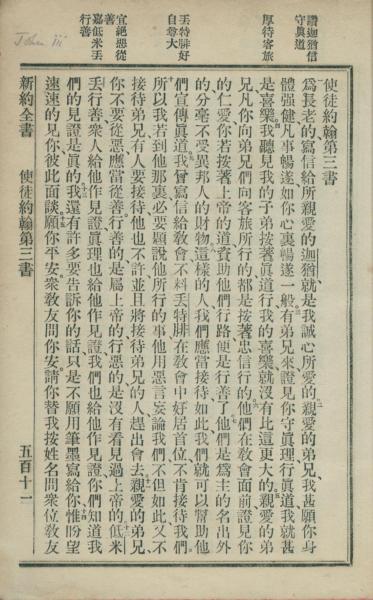 John iii
讚迦猶信
守眞道
厚待客旅
丟特腓好
自尊大
宜絕惡從
善
嘉低米丟
行善
使徒約翰第三書
爲長老的寫信給所親愛的迦猶就是我誠心所愛的親愛的弟兄我甚願你身
體强健凡事暢遂如你心裏暢遂一般有弟兄來證見你守眞理行眞道我就甚
是喜樂我聽見我的子弟按著眞道行我的喜樂就沒有比這更大的親愛的弟
兄凡你向弟兄們向客旅所行的都是按著忠信行的他們在敎會面前證見你
的仁愛你若按著上帝的道資助他們行路便是行善了他們是爲主的名出外
的分毫不受異邦人的財物這樣的人我們應當接待如此我們就可以幫助他
們宣傳眞道我曾寫信給敎會不料丟特腓在敎會中好居首位不肯接待我們
所以我若到他那裏必要題說他所行的事他用惡言妄論我們不但如此又不
接待弟兄有人要接待他也不許並且將接待弟兄的人趕出會去親愛的弟兄
你不要從惡應當從善行善的是屬上帝的行惡的是沒有看見過上帝的低米
丟行善衆人給他作見證眞理也給他作見證我們也給他作見證你們知道我
們的見證是眞的我還有許多要告訴你的話只是不願用筆墨寫給你惟盼望
速速的見你彼此面談願你平安衆敎友問你安請你替我按姓名問衆位敎友
安
新約全書　使徒約翰第三書　五百十一